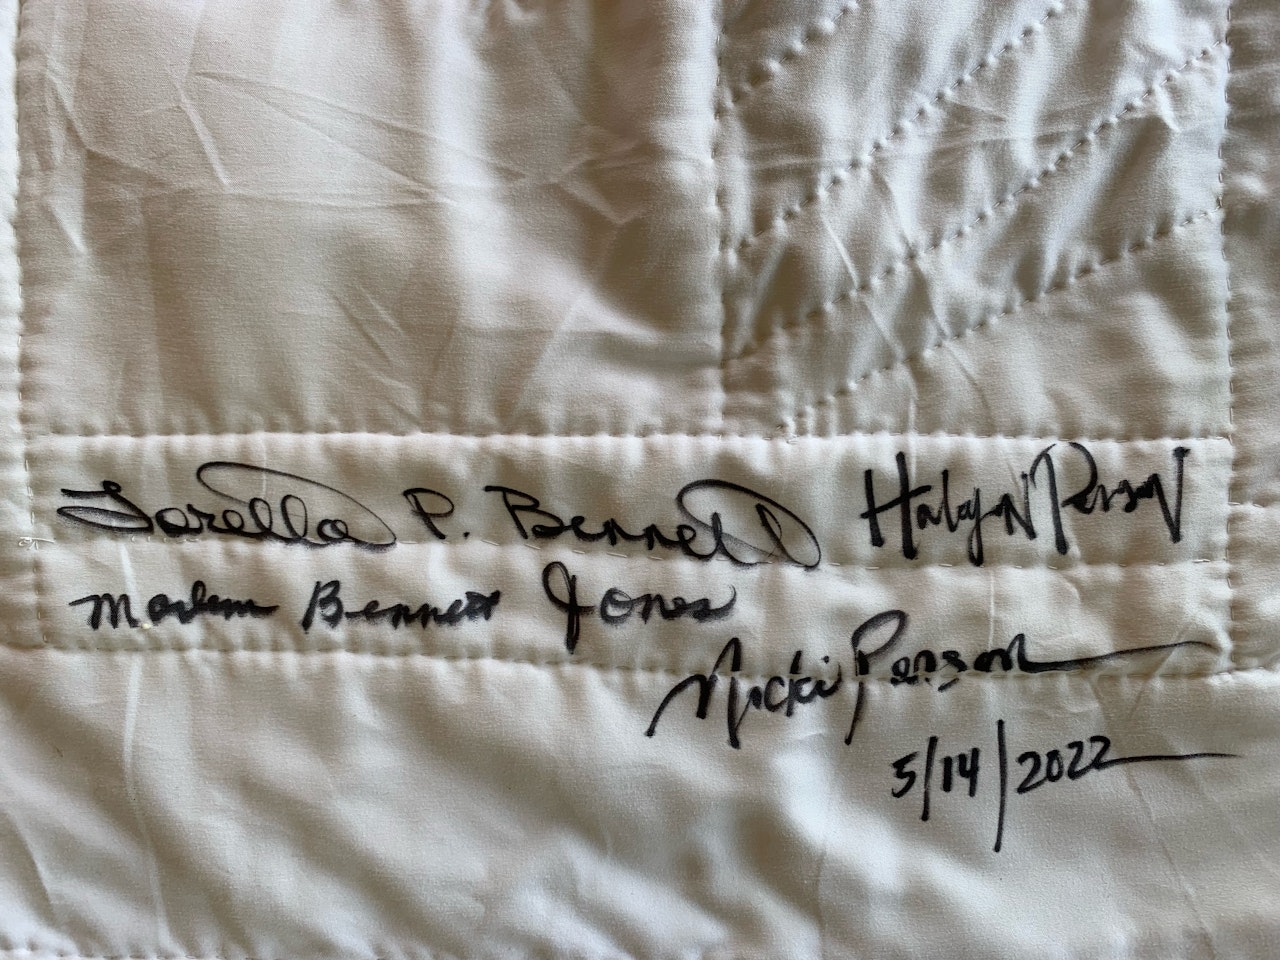 Lorella P. Bennett Halcyon Person
Marlene Bennett Jones
Nicki Person
5/14/2022